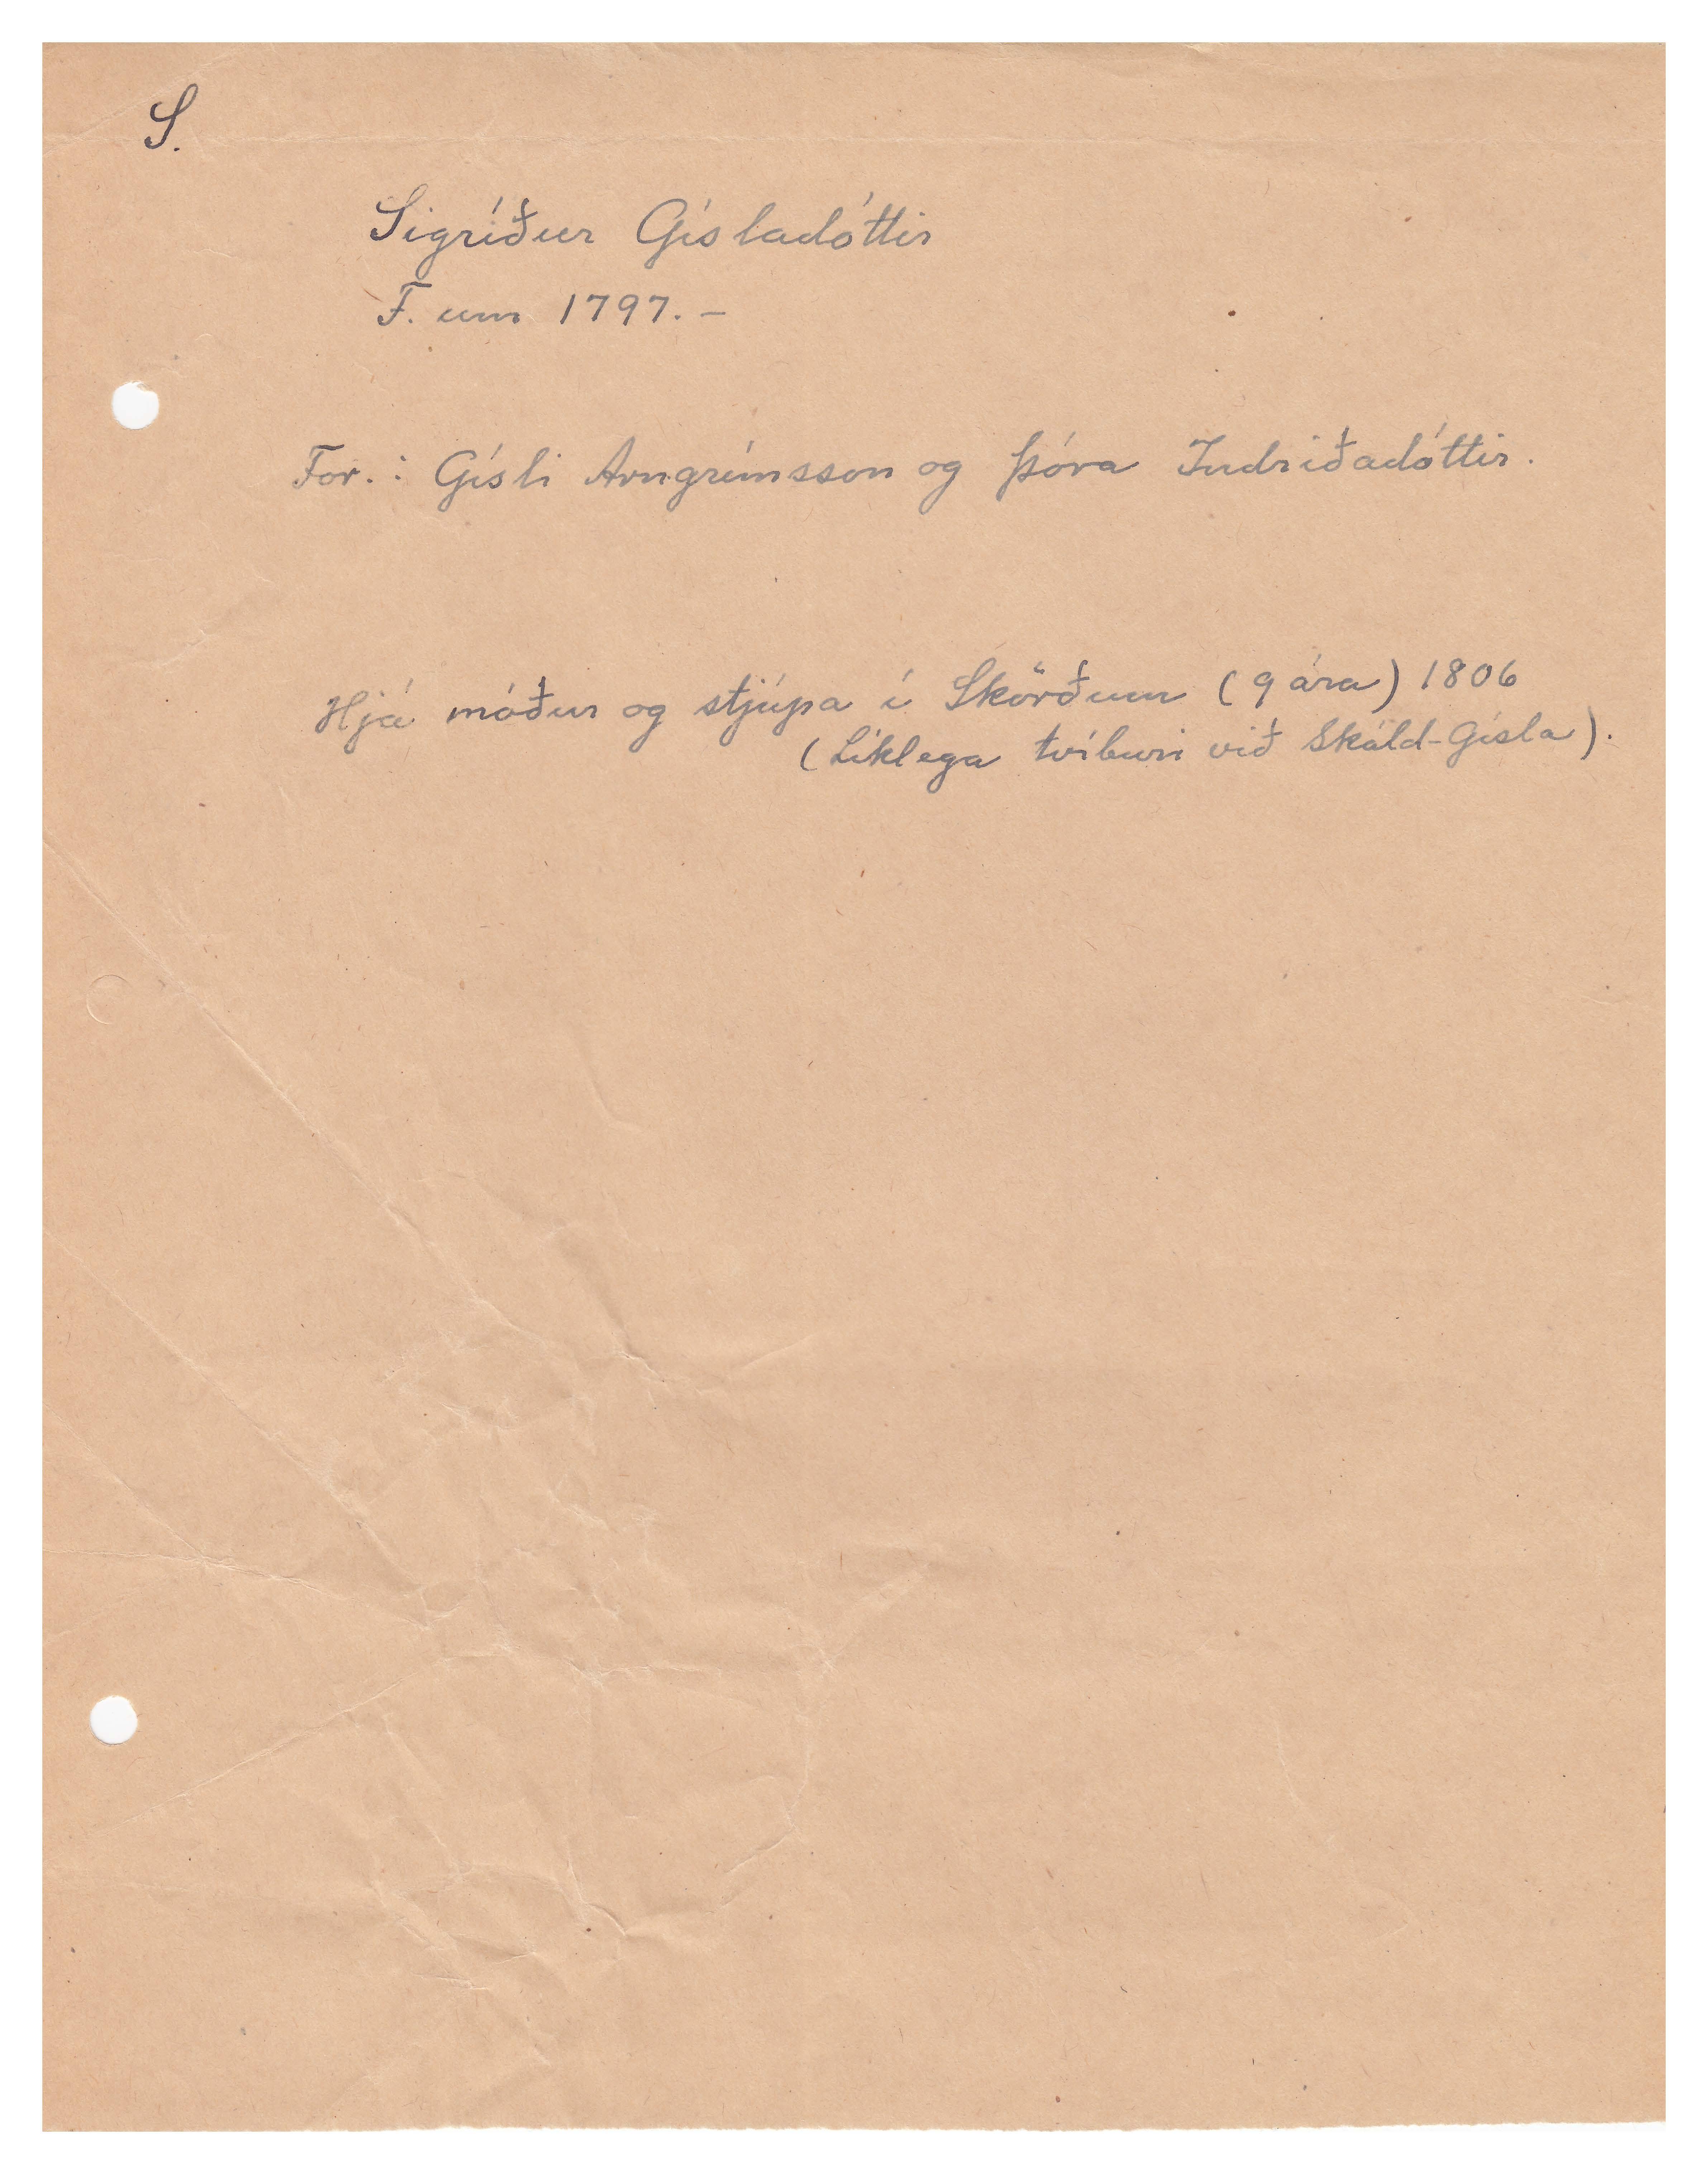 S.
Sigríður Gísladóttir
F. um 1797. –
For.: Gísli Arngrímsson og Þóra Indriðadóttir.
Hjá móður og stjúpa í Skörðum (9 ára) 1806
(Líklega tvíburi við Skáld-Gísla).